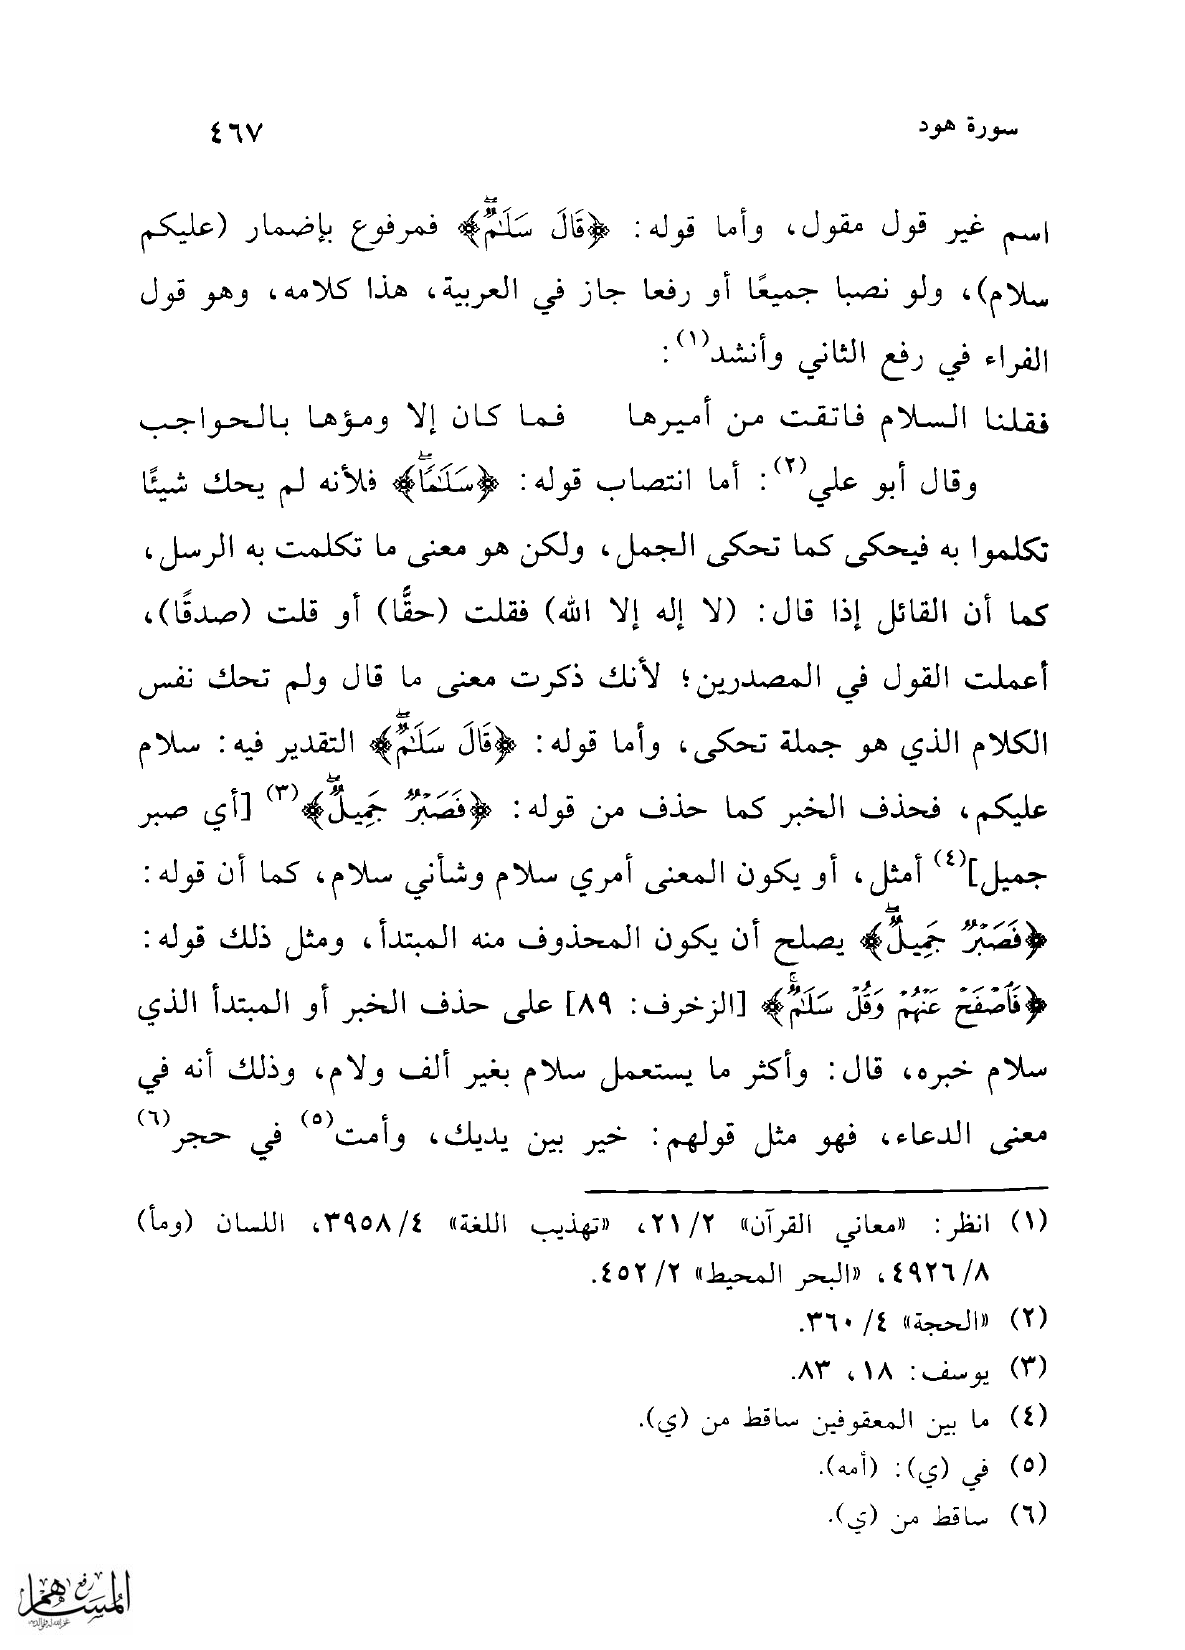 سورة هود
٤٦٧
اسم غير قول مقول، وأما قوله: ﴿قَالَ سَلَٰمٌۖ﴾ فمرفوع بإضمار (عليكم
سلام)، ولو نصبا جميعًا أو رفعا جاز في العربية، هذا كلامه، وهو قول
الفراء في رفع الثاني وأنشد(١):
فقلنا السلام فاتقت من أميرها فما كان إلا ومؤها بالحواجب
وقال أبو علي(٢): أما انتصاب قوله: ﴿سَلَٰمٗاۖ﴾ فلأنه لم يحك شيئًا
تكلموا به فيحكى كما تحكى الجمل، ولكن هو معنى ما تكلمت به الرسل،
كما أن القائل إذا قال: (لا إله إلا الله) فقلت (حقًّا) أو قلت (صدقًا)،
أعملت القول في المصدرين؛ لأنك ذكرت معنى ما قال ولم تحك نفس
الكلام الذي هو جملة تحكى، وأما قوله: ﴿قَالَ سَلَٰمٌۖ﴾ التقدير فيه: سلام
عليكم، فحذف الخبر كما حذف من قوله: ﴿فَصَبۡرٞ جَمِيلٌۖ﴾(٣) [أي صبر
جميل](٤) أمثل، أو يكون المعنى أمري سلام وشأني سلام، كما أن قوله:
﴿فَصَبۡرٞ جَمِيلٌۖ﴾ يصلح أن يكون المحذوف منه المبتدأ، ومثل ذلك قوله:
﴿فَٱصۡفَحۡ عَنۡهُمۡ وَقُلۡ سَلَٰمٌۚ﴾ [الزخرف: ٨٩] على حذف الخبر أو المبتدأ الذي
سلام خبره، قال: وأكثر ما يستعمل سلام بغير ألف ولام، وذلك أنه في
معنى الدعاء، فهو مثل قولهم: خير بين يديك، وأمت(٥) في حجر(٦)
(١) انظر: «معاني القرآن» ٢/ ٢١، «تهذيب اللغة» ٤/ ٣٩٥٨، اللسان (ومأ)
٨/ ٤٩٢٦، «البحر المحيط» ٢/ ٤٥٢.
(٢) «الحجة» ٤/ ٣٦٠.
(٣) يوسف: ١٨، ٨٣.
(٤) ما بين المعقوفين ساقط من (ي).
(٥) في (ي): (أمه).
(٦) ساقط من (ي).